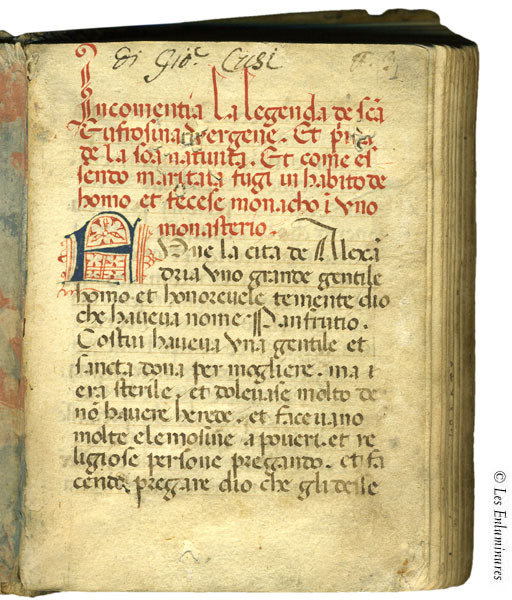 Di Gio: Cusi
Incomentia La legenda de sc̄a
Eufrosina vergene. Et p̄ma
de la soa natiuita. Et come es
sendo maritata fugi in habito de
homo et fecese monacho ī vno
monasterio.
AVone la cita de Alexā
dria vno grande gentile
homo et honoreuele temente dio
che haueua nome Panfrutio.
Costui haueua vna gentile et
sancta dona per mogliere. ma i
era sterile. et doleuase molto de
nō hauere herede. et faceuano
molte elemosine a poueri. et re
ligiose persone pregando. et fa
cende pregare dio che gli desse
© Les Enluminures